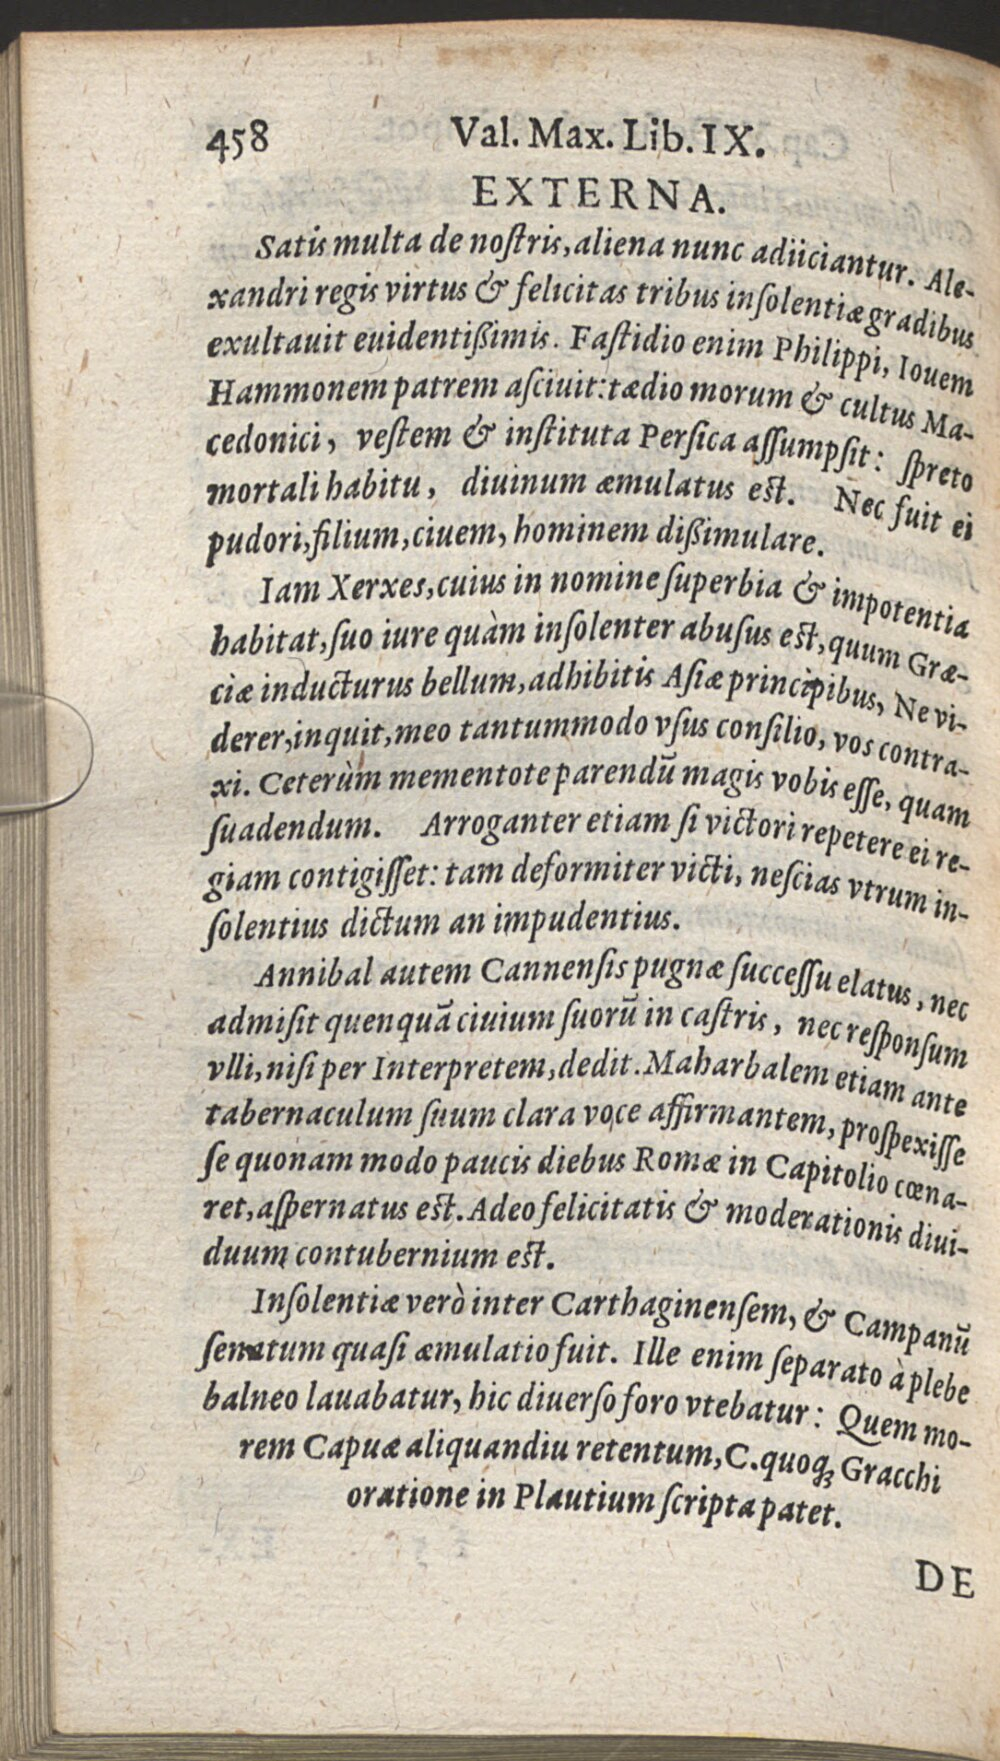 458 Val. Max. Lib. IX.
EXTERNA.
Satis multa de noſtris, aliena nunc adiiciantur. Ale-
xandri regis virtus & felicitas tribus inſolentiæ gradibus
exultauit euidentißimis. Faſtidio enim Philippi, Iouem
Hammonem patrem aſciuit: tædio morum & cultus Ma-
cedonici, veſtem & inſtituta Perſica aſſumpſit: ſpreto
mortali habitu, diuinum æmulatus eſt. Nec fuit ei
pudori, filium, ciuem, hominem dißimulare.
Iam Xerxes, cuius in nomine ſuperbia & impotentia
habitat, ſuo iure quàm inſolenter abuſus eſt, quum Græ-
ciæ inducturus bellum, adhibitis Aſiæ principibus, Ne vi-
derer, inquit, meo tantummodo vſus conſilio, vos contra-
xi. Ceterùm mementote parendũ magis vobis eſſe, quam
ſuadendum. Arroganter etiam ſi victori repetere ei re-
giam contigiſſet: tam deformiter victi, neſcias vtrum in-
ſolentius dictum an impudentius.
Annibal autem Cannenſis pugnæ ſucceſſu elatus, nec
admiſit quenquã ciuium ſuorũ in caſtris, nec reſponſum
vlli, niſi per Interpretem, dedit. Maharbalem etiam ante
tabernaculum ſuum clara voce affirmantem, proſpexiſſe
ſe quonam modo paucis diebus Romæ in Capitolio cœna-
ret, aſpernatus eſt. Adeo felicitatis & moderationis diui-
duum contubernium eſt.
Inſolentiæ verò inter Carthaginenſem, & Campanũ
ſenatum quaſi æmulatio fuit. Ille enim ſeparato à plebe
balneo lauabatur, hic diuerſo foro vtebatur: Quem mo-
rem Capuæ aliquandiu retentum, C. quoq; Gracchi
oratione in Plautium ſcripta patet.
DE